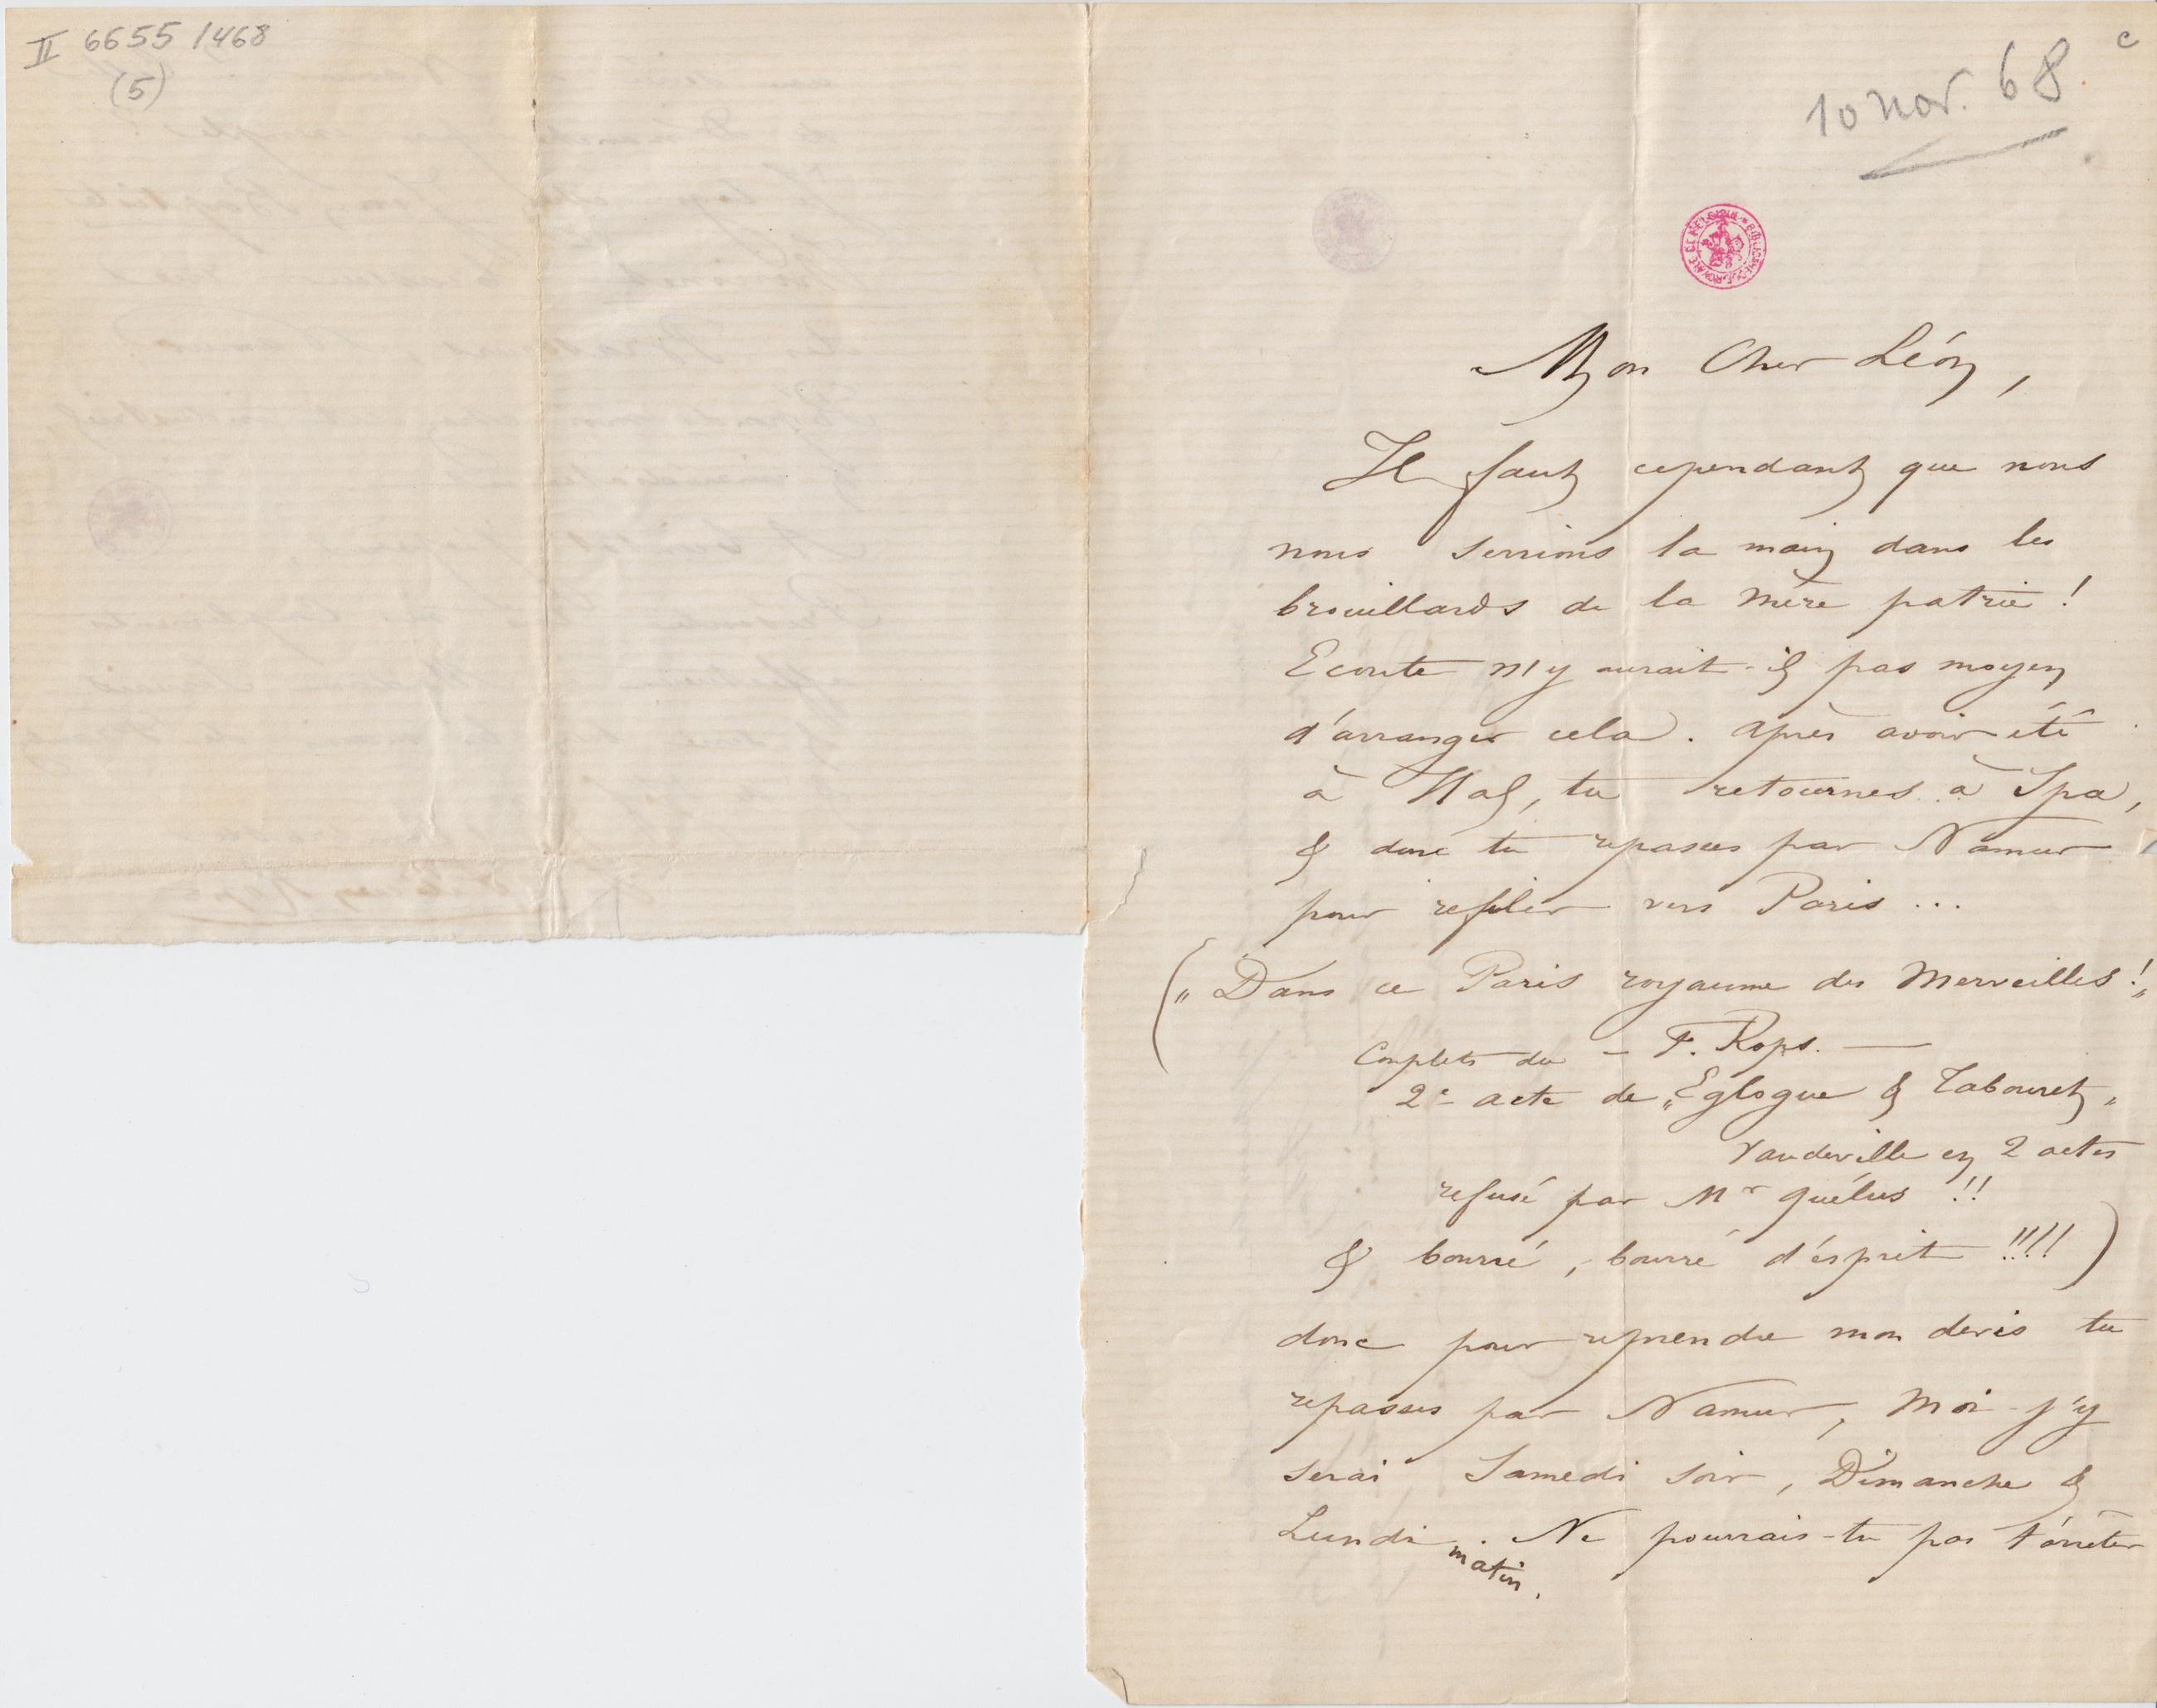 II 6655/468
(5)
c
10 nov. 68
BIBLIOTHEQUE ROYALE DE BELGIQUE
Mon Cher Léon,
Il faut cependant que nous
nous serrions la main dans les
brouillards de la mère patrie !
Ecoute n'y aurait-il pas moyen
d'arranger cela. après avoir été
à Hal, tu retournes à Spa,
& donc tu repasses par Namur
pour refiler vers Paris ...
(" Dans ce Paris royaume des Merveilles ! "
Couplets du — F. Rops. —
2e acte de "Eglogue & Tabouret "
Vaudeville en 2 actes
refusé par Mr Quélus !!
& bourré, bourré d'ésprit !!!! )
donc pour reprendre mon devis tu
repasses par Namur, Moi j'y
serai Samedi soir, Dimanche &
Lundi matin. Ne pourrais-tu pas t'arrêter